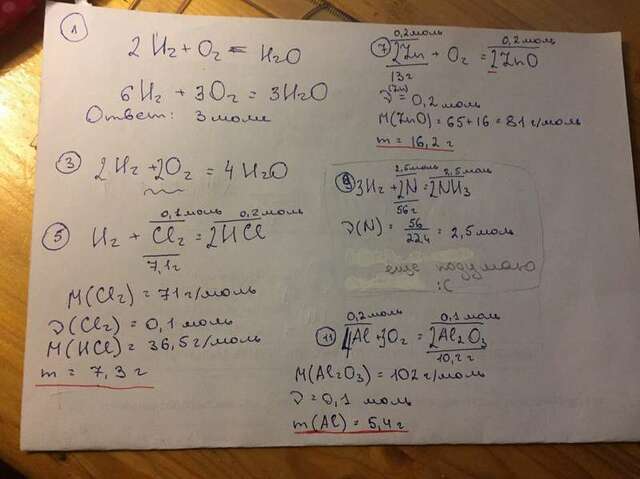 1
2H₂ + O₂ = H₂O
6H₂ + 3O₂ = 3H₂O
Ответ: 3 моле
3
2H₂ + 2O₂ = 4H₂O
5
0,1 моль 0,2 моль
H₂ + Cl₂ = 2HCl
7,1г
M(Cl₂) = 71 г/моль
ν(Cl₂) = 0,1 моль
M(HCl) = 36,5 г/моль
m = 7,3 г
7
0,2 моль 0,2 моль
2Zn + O₂ = 2ZnO
13г
ν(Zn) = 0,2 моль
M(ZnO) = 65+16 = 81 г/моль
m = 16,2 г
9
2,5 моль 2,5 моль
3H₂ + 2N = 2NH₃
56г
ν(N) = 56/22,4 = 2,5 моль
еще подумаю
:C
11
0,2 моль 0,1 моль
4Al + 3O₂ = 2Al₂O₃
10,2 г
M(Al₂O₃) = 102 г/моль
ν = 0,1 моль
m(Al) = 5,4 г